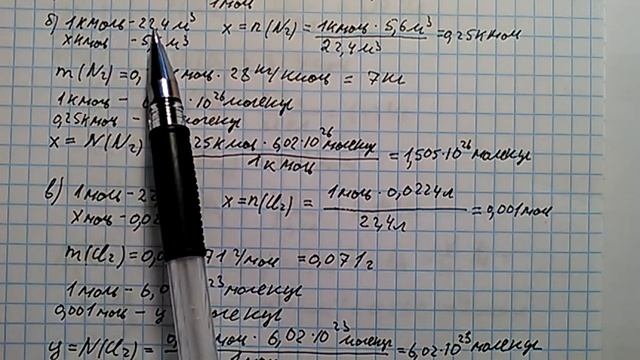 1моль
б) 1кмоль-22,4м³ x = n(N₂) = 1кмоль · 5,6м³ / 22,4м³ = 0,25кмоль
xкмоль -5, м³
m(N₂) = 0, кмоль · 28 кг/кмоль = 7кг
1кмоль - 6, · 10²⁶ молекул
0,25кмоль - молекул
x = N(N₂) 25кмоль · 6,02·10²⁶ молекул / 1кмоль = 1,505·10²⁶ молекул
в) 1моль-22 x = n(Cl₂) = 1моль · 0,0224л / 22,4л = 0,001моль
xмоль -0,02
m(Cl₂) = 0,0 71 г/моль = 0,071г
1моль - 6,0 ²³ молекул
0,001моль - y молекул
y = N(Cl₂) = 0, моль · 6,02·10²³ молекул = 6,02·10²³ молекул